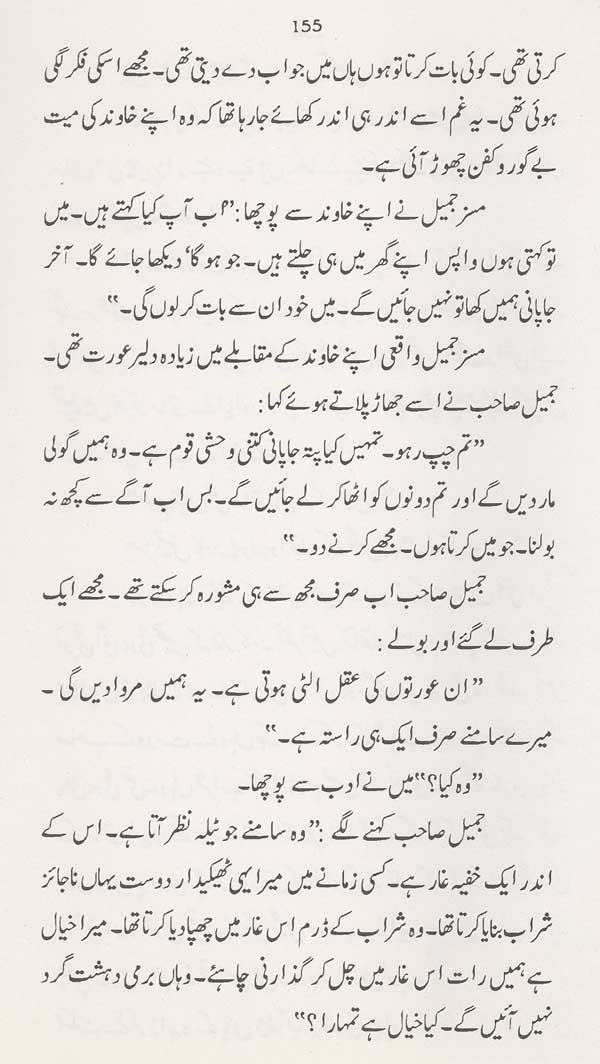 155
کرتی تھی۔ کوئی بات کرتا تو ہوں ہاں میں جواب دے دیتی تھی۔ مجھے اسکی فکر لگی
ہوئی تھی۔ یہ غم اسے اندر ہی اندر کھائے جا رہا تھا کہ وہ اپنے خاوند کی میت
بے گور و کفن چھوڑ آئی ہے۔
مسز جمیل نے اپنے خاوند سے پوچھا: ”اب آپ کیا کہتے ہیں۔ میں
تو کہتی ہوں واپس اپنے گھر میں ہی چلتے ہیں۔ جو ہو گا‘ دیکھا جائے گا۔ آخر
جاپانی ہمیں کھا تو نہیں جائیں گے۔ میں خود ان سے بات کر لوں گی۔“
مسز جمیل واقعی اپنے خاوند کے مقابلے میں زیادہ دلیر عورت تھی۔
جمیل صاحب نے اسے جھاڑ پلاتے ہوئے کہا:
”تم چپ رہو۔ تمہیں کیا پتہ جاپانی کتنی وحشی قوم ہے۔ وہ ہمیں گولی
مار دیں گے اور تم دونوں کو اٹھا کر لے جائیں گے۔ بس اب آگے سے کچھ نہ
بولنا۔ جو میں کرتا ہوں۔ مجھے کرنے دو۔“
جمیل صاحب اب صرف مجھ سے ہی مشورہ کر سکتے تھے۔ مجھے ایک
طرف لے گئے اور بولے:
”ان عورتوں کی عقل الٹی ہوتی ہے۔ یہ ہمیں مروا دیں گی۔
میرے سامنے صرف ایک ہی راستہ ہے۔“
”وہ کیا؟“ میں نے ادب سے پوچھا۔
جمیل صاحب کہنے لگے: ”وہ سامنے جو ٹیلہ نظر آتا ہے۔ اس کے
اندر ایک خفیہ غار ہے۔ کسی زمانے میں میرا یہی ٹھیکیدار دوست یہاں ناجائز
شراب بنایا کرتا تھا۔ وہ شراب کے ڈرم اس غار میں چھپا دیا کرتا تھا۔ میرا خیال
ہے ہمیں رات اس غار میں چل کر گذارنی چاہئے۔ وہاں برمی دہشت گرد
نہیں آئیں گے۔ کیا خیال ہے تمہارا؟“